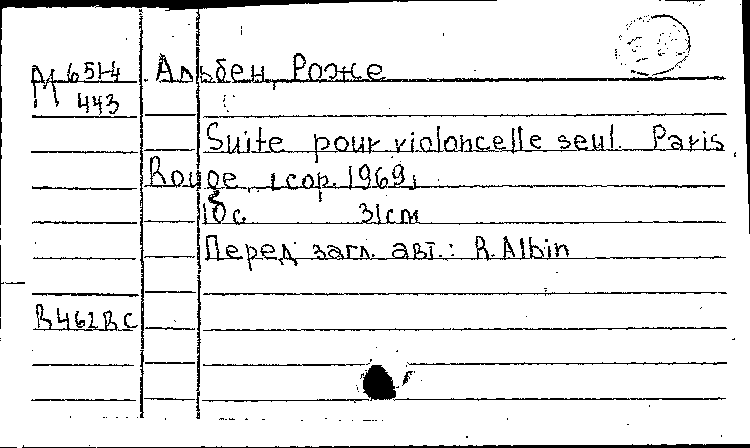 М 651-4 Альбен, Роже
443
Suite pour violoncelle seul. Paris,
Rouge, [cop. 1969]
31 cm
Перед загл. авт.: R. Albin
R462RC